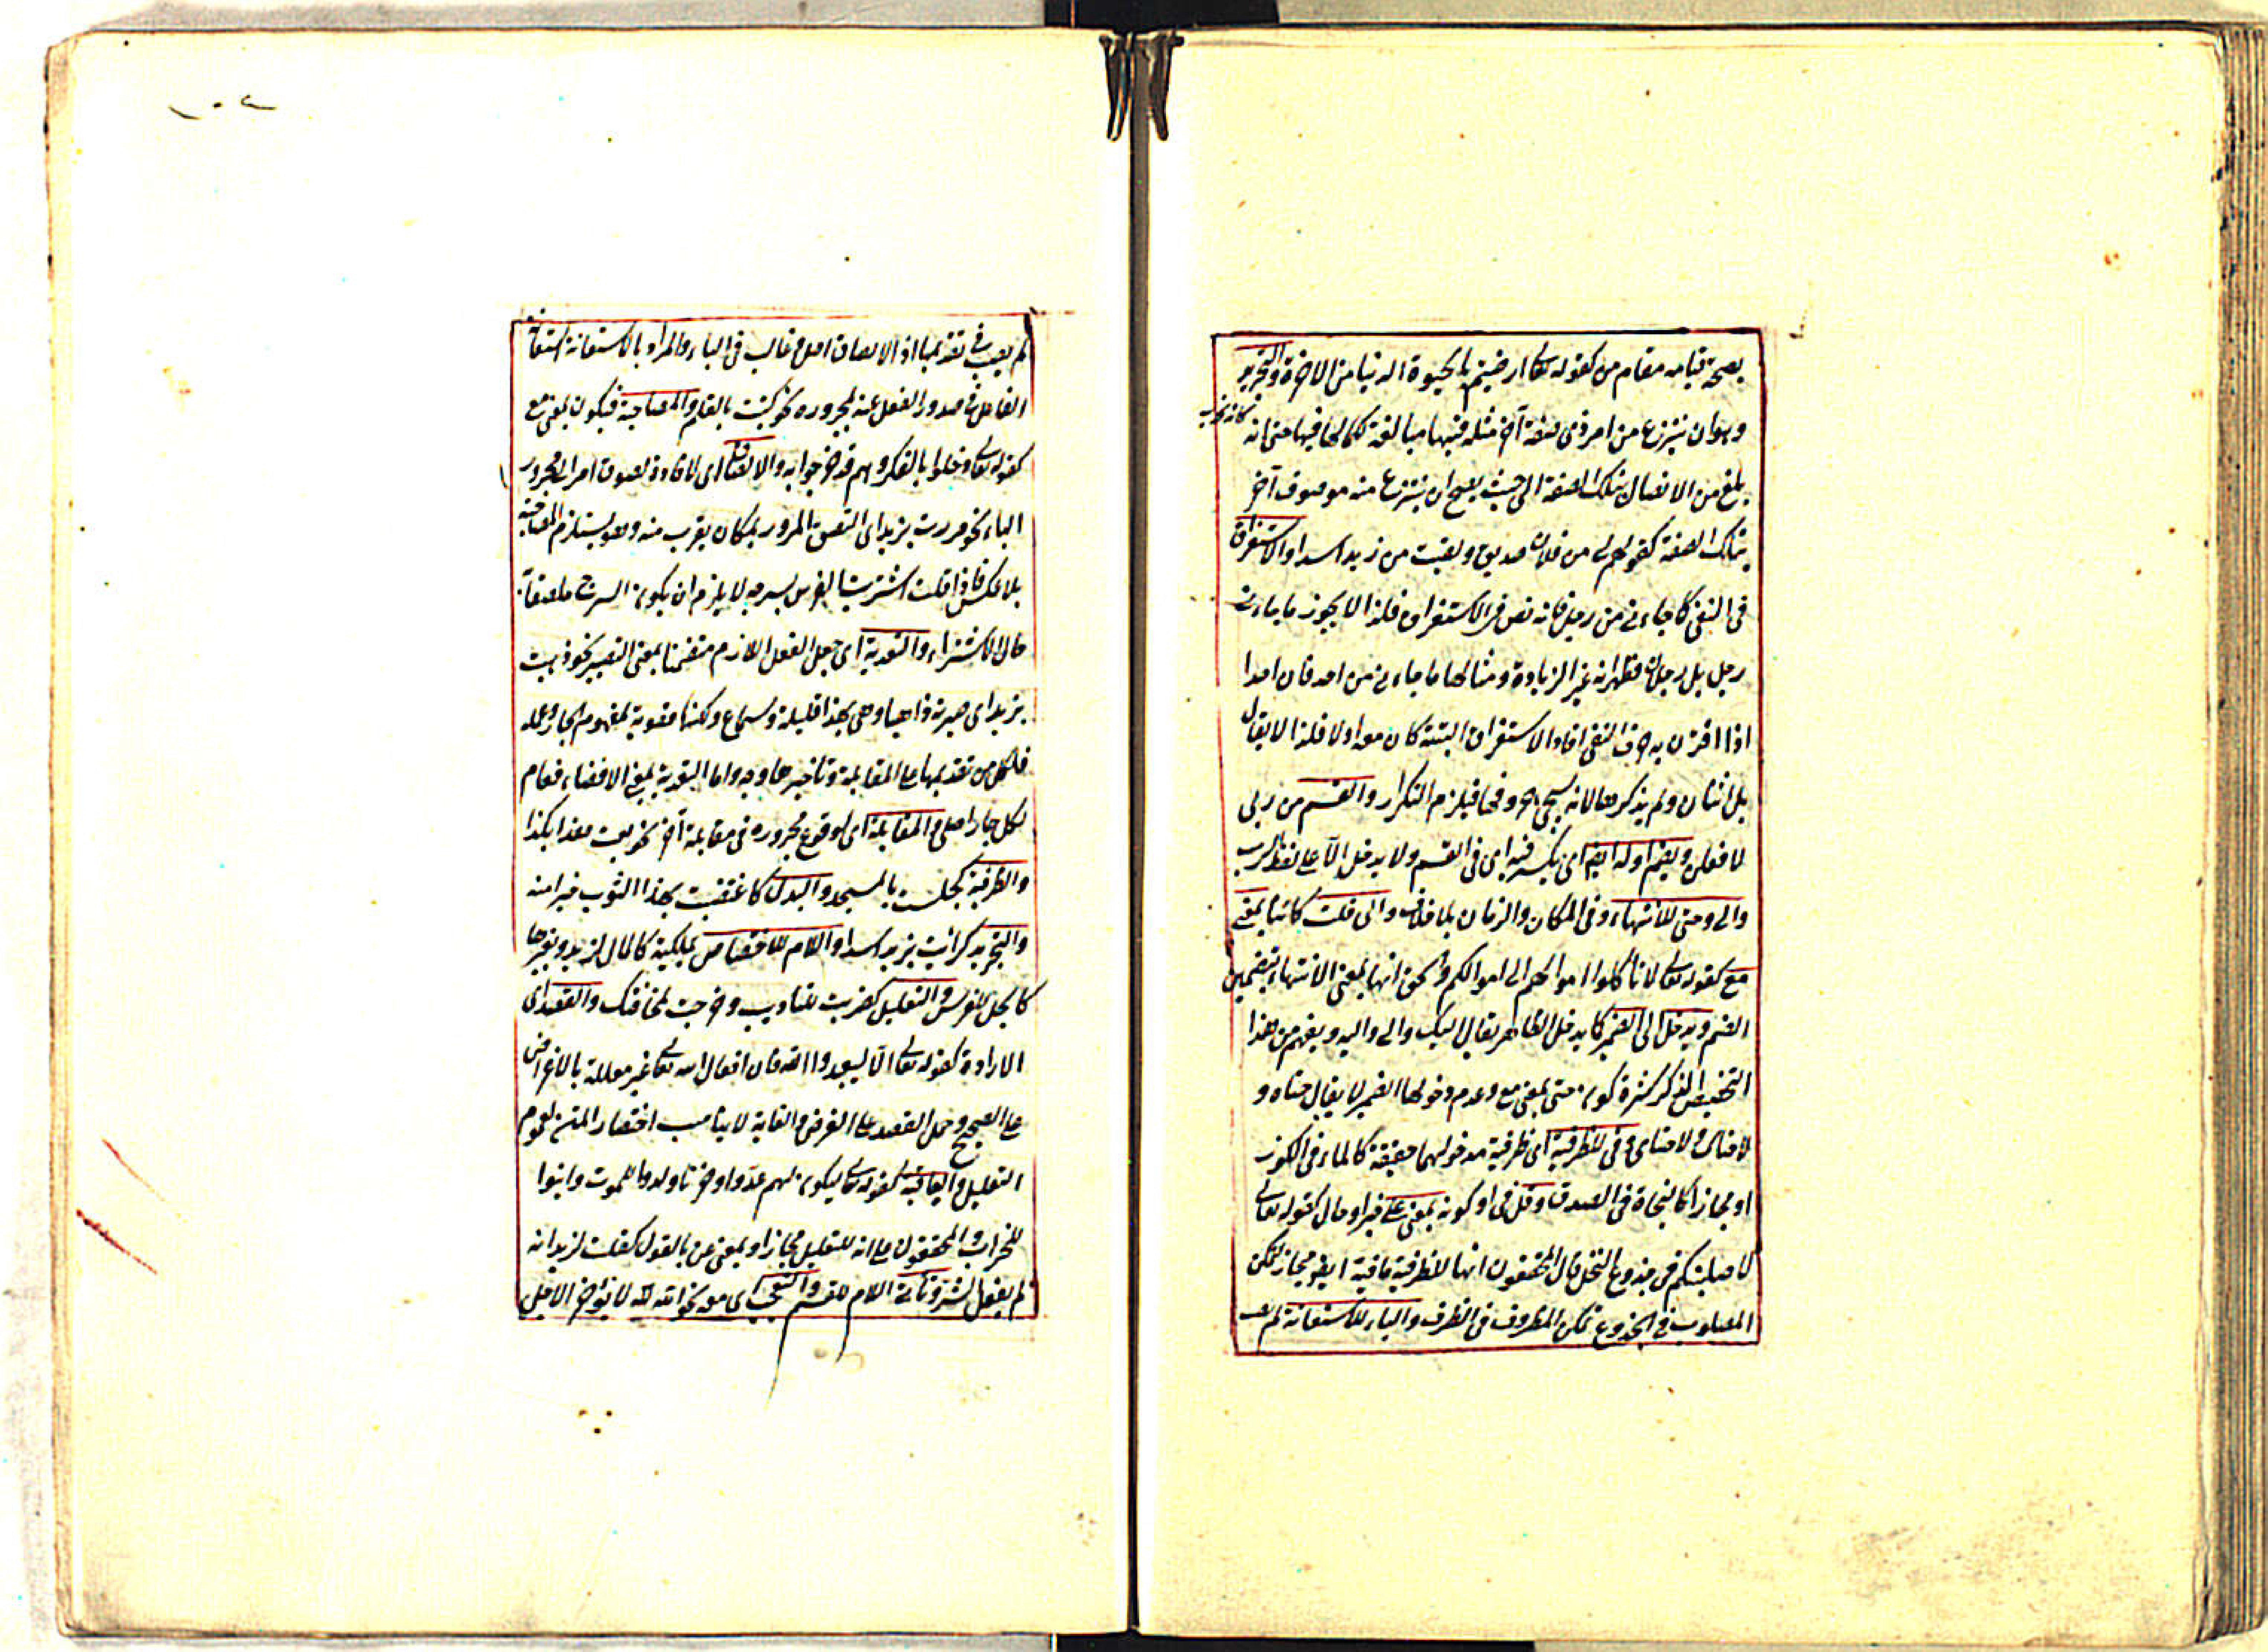 يصحة قيامه مقام من كقوله تعالى ارضيتم بالحيوة الدنيا من الاخرة والتجريد
وهو ان ينتزع من امر ذى صفة آخر مثله فيها مبالغة لكمالها فيها حتى انه كانه
بلغ من الاتصال بتلك الصفة الى حيث يصح ان ينتزع منه موصوف آخر
بتلك الصفة كقولهم لى من فلان صديق ولقيت من زيد اسدا والاستغراق
فى النفى كما جاءنى من رجل فانه نص فى الاستغراق فلذا لا يجوز ما جاءنى
رجل بل رجلان فظهر انه غير الزيادة ومثالها ما جاءنى من احد فان احدا
اذا اقترن به حرف النفى افاد الاستغراق البتة كان معه اولا فلذا لا يقال
بل اثنان ولم يذكرها لانه سيجئ فيلزم التكرار والقسم من ربى
لافعلن ويضم اوله ايضا اى يكسر فيه اى فى القسم ولا يدخل الا على لفظ الرب
والى وحتى للانتهاء وفى المكان والزمان بلا خلاف والى قلت كائنا بمعنى
مع كقوله تعالى لا تأكلوا اموالهم الى اموالكم والحق انها بمعنى الانتهاء بتضمين
الضم ويدخل الى الضمير كما يدخل الظاهر يقال اليك والى واليه ويفهم من هذا
التخصيص الذكر كثرة كون حتى بمعنى مع وعدم دخولها الضمير لا يقال حتاه و
لا حتاك ولا حتاى وفى للظرفية اى ظرفية مدخولهما حقيقة كالماء فى الكوز
او مجازا كالنجاة فى الصدق وقل فى او كونه بمعنى على خبر او حال كقوله تعالى
لاصلبنكم فى جذوع النخل قال المحققون انها للظرفية باقية ايضا مجاز لتمكن
المصلوب فى الجذوع تمكن المظروف فى الظرف والباء للاستعانة لم يصب
لم يصب فى تقديمها اذ الالصاق اصل وغالب فى الباء والمراد بالاستعانة استعانة
الفاعل فى صدور الفعل عنه لمجروره نحو كتبت بالقلم والمصاحبة فيكون بمعنى مع
كقوله تعالى دخلوا بالكفر وهم قد خرجوا به والالصاق اى لافادة لصوق امر الى مجرور
الباء نحو مررت بزيد اى التصق المرور بمكان يقرب منه وهو يستلزم المصاحبة
بلا عكس فاذا قلت اشتريت الفرس بسرجه لا يلزم ان يكون السرج ملصقا
حال الاشتراء والتعدية اى جعل الفعل اللازم متضمنا بمعنى التصيير نحو ذهبت
بزيد اى صيرته ذاهبا وهى بهذا قليلة وسماع ولكنها مقوية لمفهوم الجار وعمله
فلكل من تقديمها على المقابلة وتأخيرها وجه واما التعدية بمعنى الافضاء فعام
لكل جار اصلى والمقابلة اى لوقوع مجروره فى مقابلة آخر نحو بعت هذا بكذا
والظرفية كجلست بالمسجد والبدل كاعتقت بهذا الثوب خيرا منه
والتجريد كرأيت بزيد اسدا واللام للاختصاص بملكية كالمال لزيد وبغيرها
كالجل للفرس والتعليل كضربت للتأديب وخرجت لمخافتك والقصد اى
الارادة كقوله تعالى الا ليعبدوا الله فان افعال الله تعالى غير معللة بالاغراض
على الصحيح وحمل القصد على الغرض والغاية لا يناسب اختصار المتن لعموم
التعليل والعاقبة كقوله تعالى ليكون لهم عدوا وحزنا ولدوا للموت وابنوا
للخراب والمحققون على انه للتعليل مجازا وبمعنى عن بالقول كقلت لزيد انه
لم يفعل الشر وتأتى اللام للقسم والتعجب اى معه نحو الله لله لا يؤخر الاجل